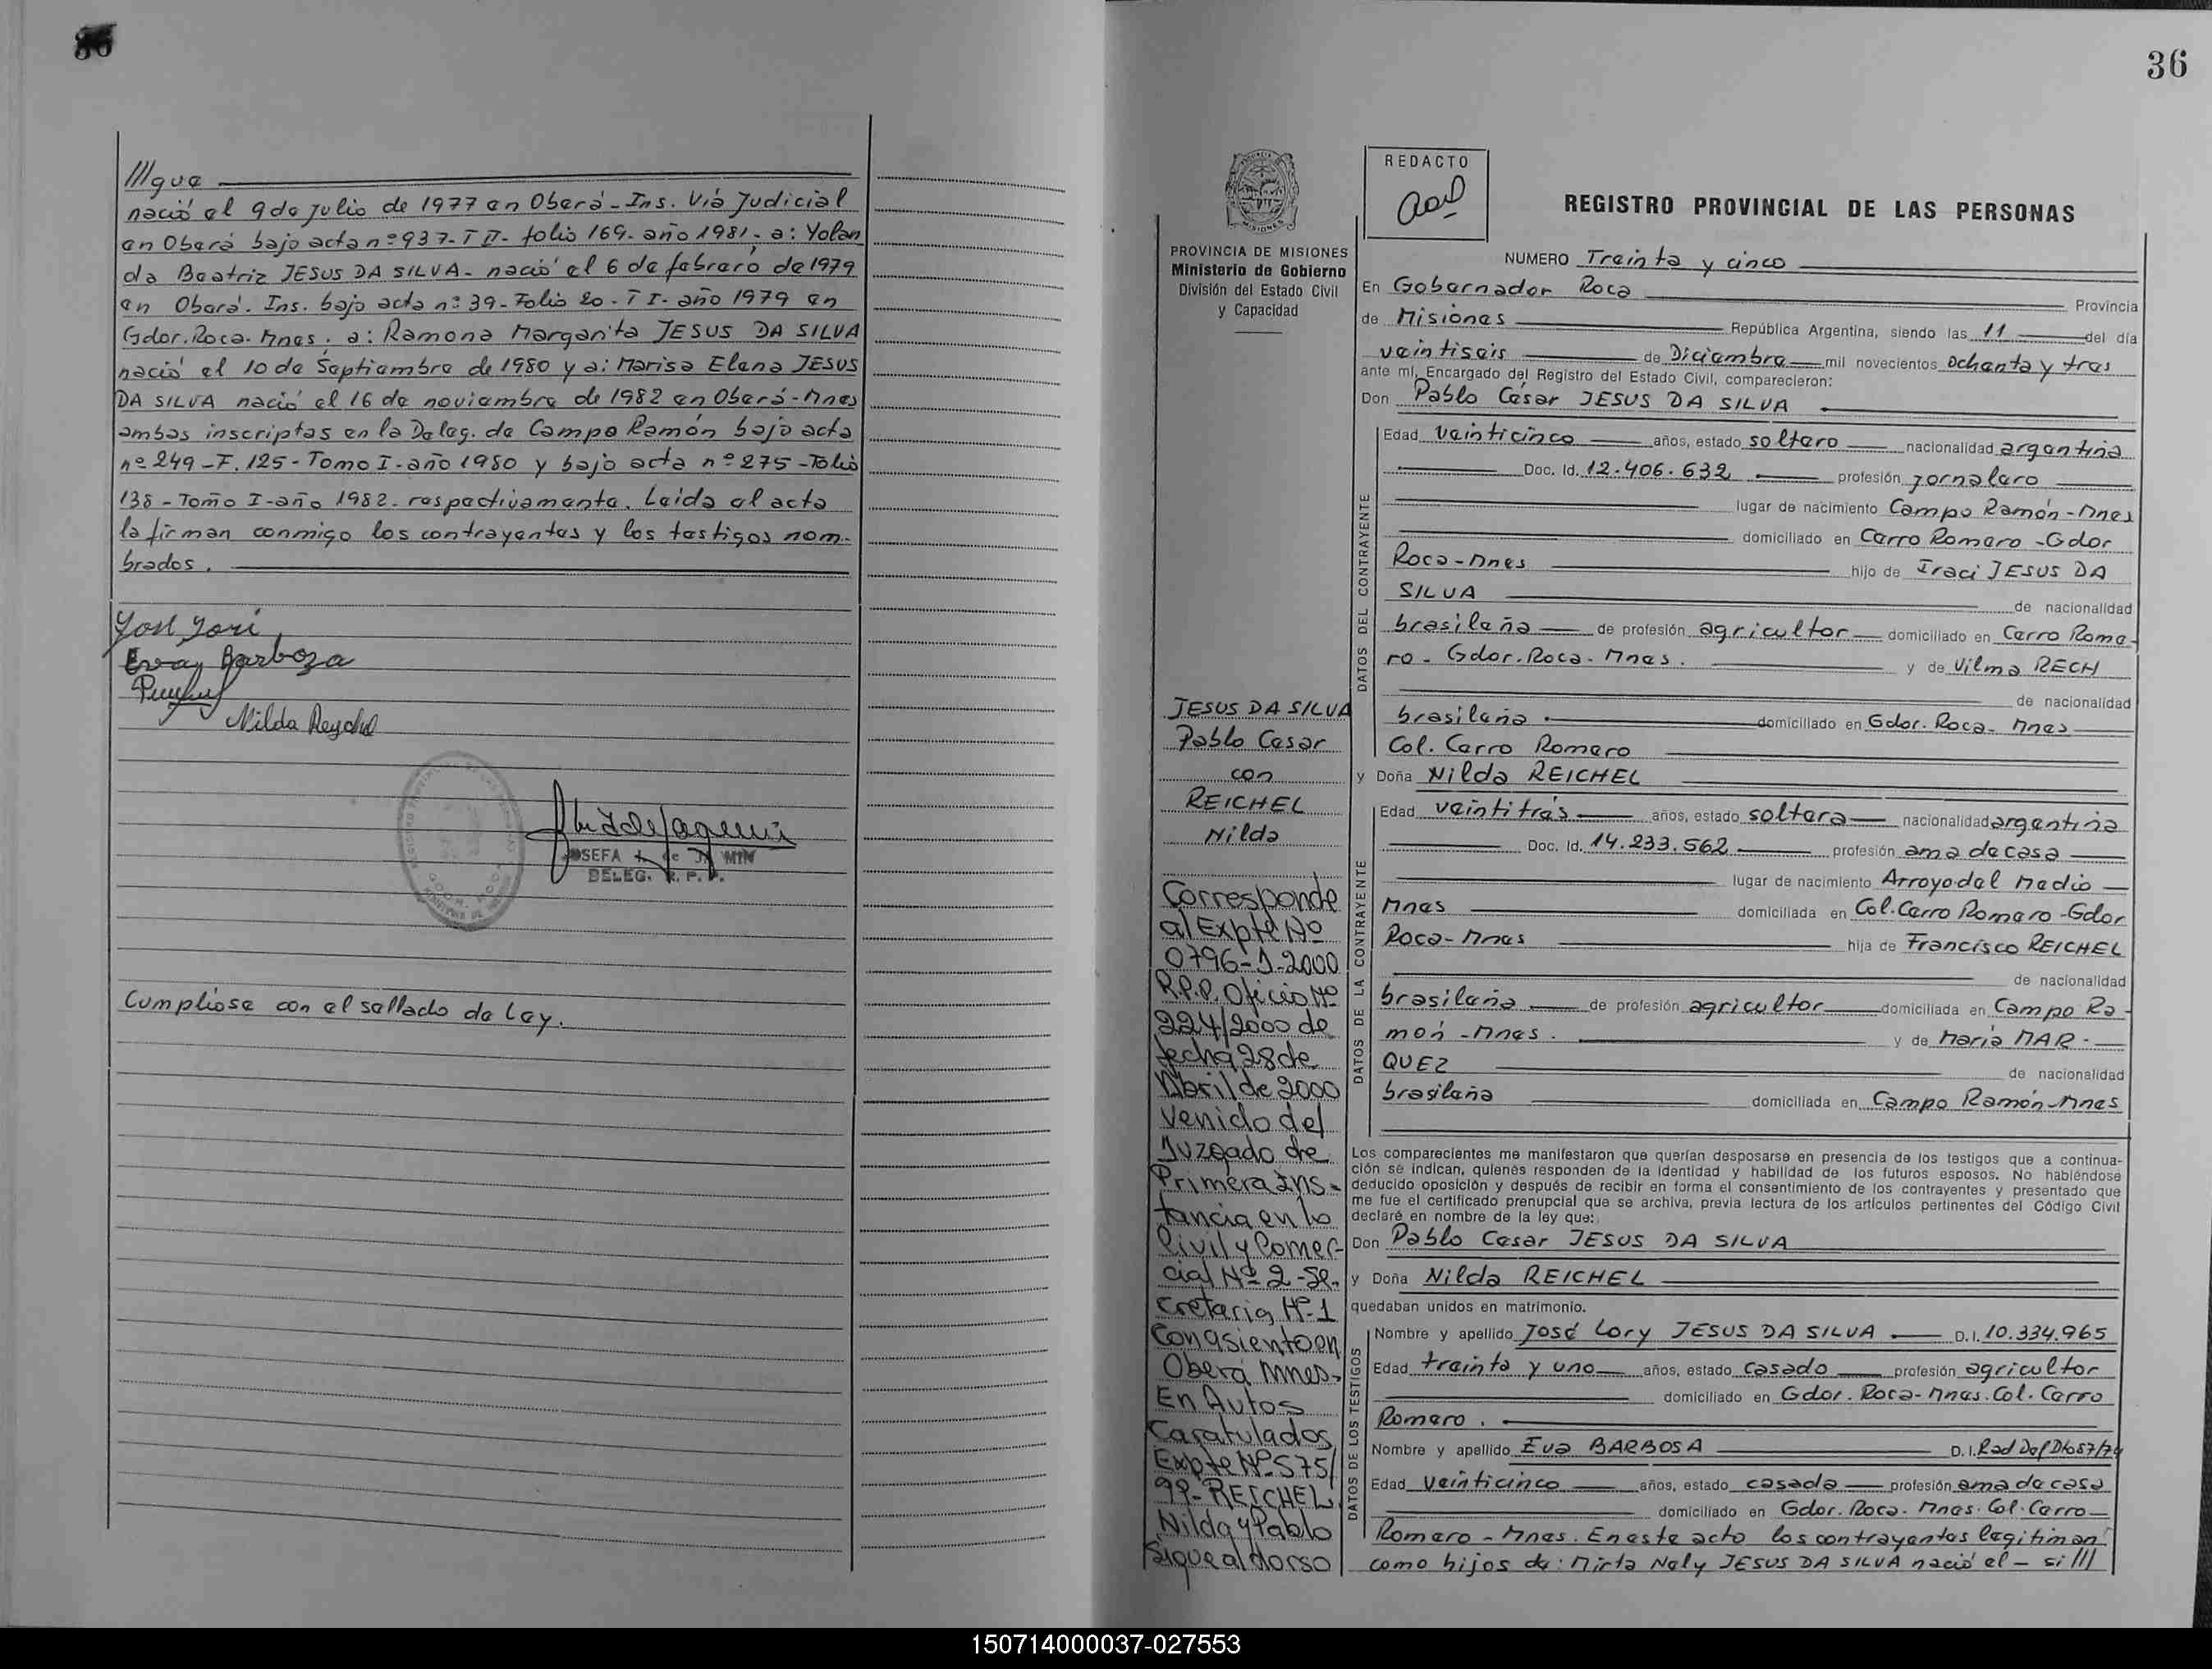 36
///gue
nació el 9 de julio de 1977 en Oberá - Ins. Viá Judicial
en Oberá bajo acta nº 937 - T II - folio 169 - año 1981 - a: Yolan
da Beatriz JESUS DA SILVA - nació el 6 de febrero de 1979
en Oberá. Ins. bajo acta nº 39 - Folio 20 - T I - año 1979 en
Gdor. Roca - Mnes. a: Ramona Margarita JESUS DA SILVA
nació el 10 de Septiembre de 1980 y a: Marisa Elena JESUS
DA SILVA nació el 16 de noviembre de 1982 en Oberá - Mnes
ambas inscriptas en la Deleg. de Campo Ramón bajo acta
nº 249 - F. 125 - Tomo I - año 1980 y bajo acta nº 275 - Folio
138 - Tomo I - año 1982 - respectivamente. Leida el acta
la firman conmigo los contrayentes y los testigos nom-
brados.
Eva Barboza
Nilda Reychel
JOSEFA
DELEG. R. P. P.
Cumpliose con el sellado de Ley.
REDACTO
REGISTRO PROVINCIAL DE LAS PERSONAS
PROVINCIA DE MISIONES
Ministerio de Gobierno
División del Estado Civil
y Capacidad
NUMERO Treinta y cinco
En Gobernador Roca Provincia
de Misiones República Argentina, siendo las 11 del día
veintiseis de Diciembre mil novecientos ochenta y tres
ante mí, Encargado del Registro del Estado Civil, comparecieron:
Don Pablo César JESUS DA SILVA
DATOS DEL CONTRAYENTE
Edad veinticinco años, estado soltero nacionalidad argentina
Doc. Id. 12.406.632 profesión jornalero
lugar de nacimiento Campo Ramón - Mnes
domiciliado en Cerro Romero - Gdor
Roca - Mnes hijo de Iraci JESUS DA
SILVA de nacionalidad
brasileña de profesión agricultor domiciliado en Cerro Rome-
ro - Gdor. Roca - Mnes. y de Vilma RECH
de nacionalidad
brasileña domiciliado en Gdor. Roca - Mnes
Col. Cerro Romero
y Doña Nilda REICHEL
DATOS DE LA CONTRAYENTE
Edad veintitrés años, estado soltera nacionalidad argentina
Doc. Id. 14.233.562 profesión ama de casa
lugar de nacimiento Arroyo del Medio
Mnes domiciliada en Col. Cerro Romero - Gdor
Roca - Mnes hija de Francisco REICHEL
de nacionalidad
brasileña de profesión agricultor domiciliada en Campo Ra-
món - Mnes. y de María MAR-
QUEZ de nacionalidad
brasileña domiciliada en Campo Ramón - Mnes
Los comparecientes me manifestaron que querían desposarse en presencia de los testigos que a continua-
ción se indican, quienes responden de la identidad y habilidad de los futuros esposos. No habiéndose
deducido oposición y después de recibir en forma el consentimiento de los contrayentes y presentado que
me fue el certificado prenupcial que se archiva, previa lectura de los artículos pertinentes del Código Civil
declaré en nombre de la ley que:
Don Pablo Cesar JESUS DA SILVA
y Doña Nilda REICHEL
quedaban unidos en matrimonio.
DATOS DE LOS TESTIGOS
Nombre y apellido José Lory JESUS DA SILVA D.I. 10.334.965
Edad treinta y uno años, estado casado profesión agricultor
domiciliado en Gdor. Roca - Mnes. Col. Cerro
Romero.
Nombre y apellido Eva BARBOSA D.I. Rad Def Dto 57/74
Edad veinticinco años, estado casada profesión ama de casa
domiciliado en Gdor. Roca - Mnes. Col. Cerro
Romero - Mnes. En este acto los contrayentes legitiman
como hijos de: Mirta Nely JESUS DA SILVA nació el - si///
JESUS DA SILVA
Pablo Cesar
con
REICHEL
Nilda
Corresponde
al Expte Nº
0796-J-2000
R.P.P. Oficio Nº
224/2000 de
fecha 28 de
Abril de 2000
Venido del
Juzgado de
Primera Ins-
tancia en lo
Civil y Comer-
cial Nº 2 - Se-
cretaria Nº 1
Con asiento en
Oberá Mnes.
En Autos
Caratulados
Expte Nº 575/
99 - REICHEL
Nilda y Pablo
Sigue al dorso
150714000037-027553